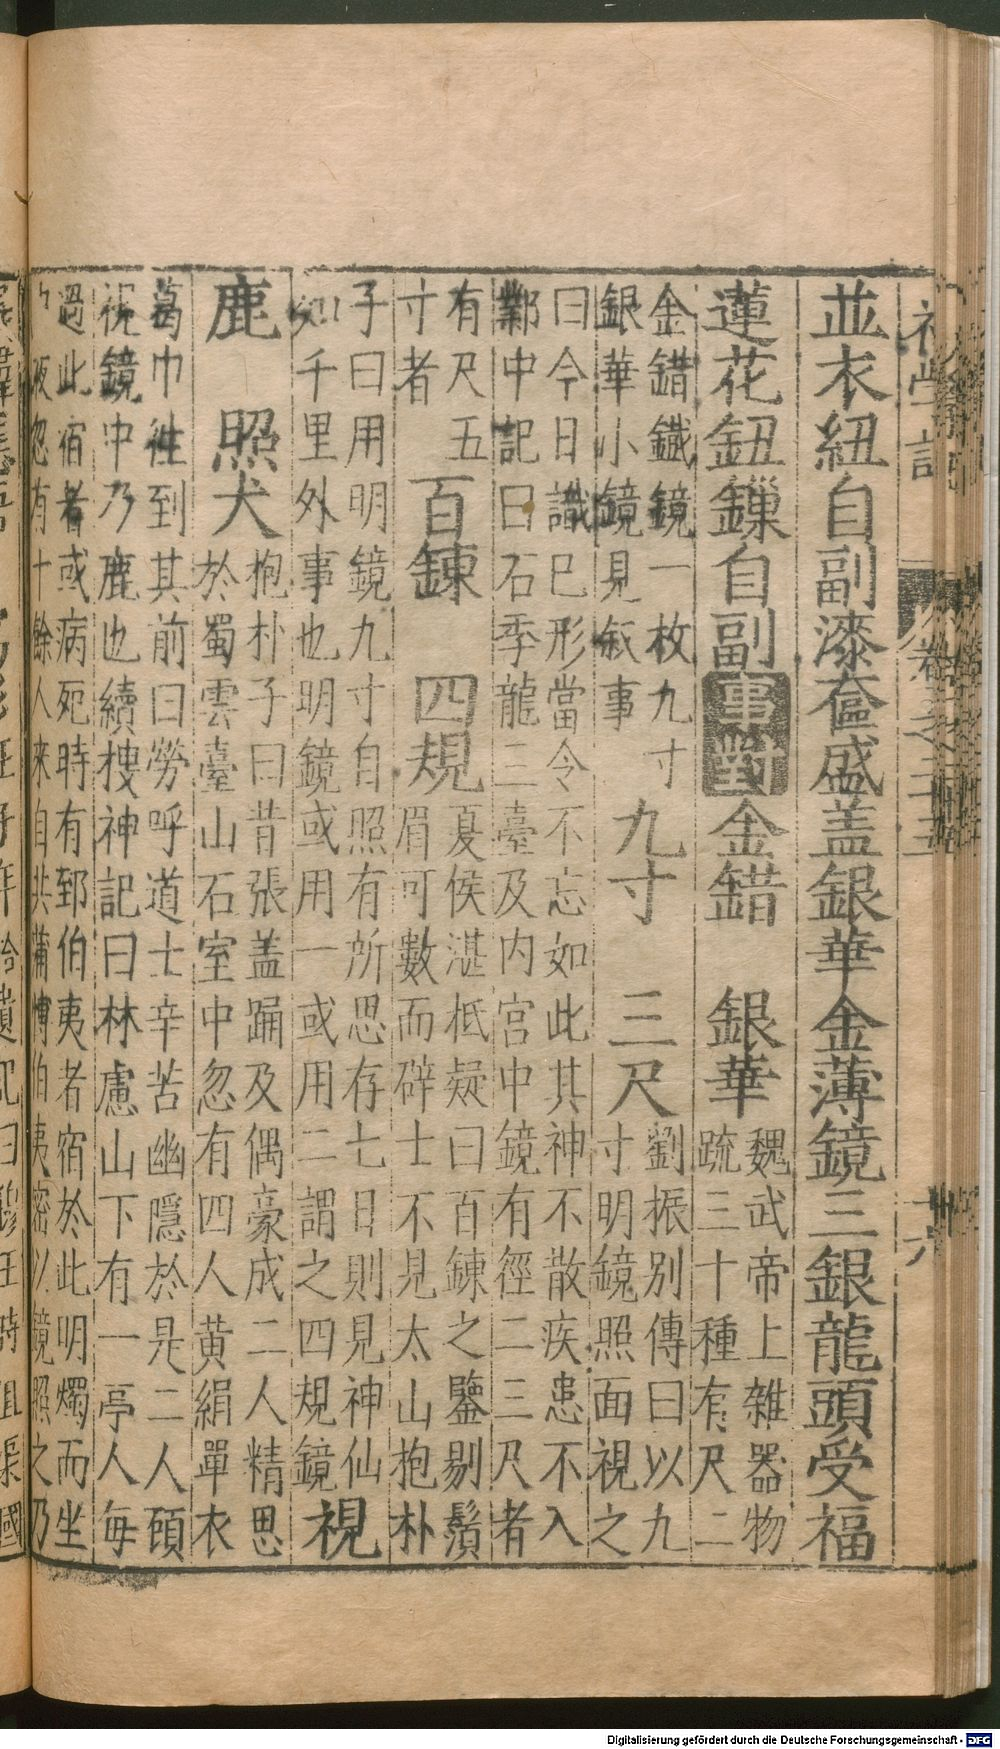 初學記
卷之二十五
十六
並衣紐自副漆奩盛盖銀華金薄鏡三銀龍頭受福
蓮花鈕鏁自副事對金錯 銀華
魏武帝上雜器物
疏三十種有尺二
金錯鐵鏡一枚九寸
銀華小鏡見叙事
九寸 三尺
劉振别傳曰以九
寸明鏡照面視之
曰今日識已形當令不忘如此其神不散疾患不入
鄴中記曰石季龍三臺及内宫中鏡有徑二三尺者
有尺五
寸者
百鍊 四規
夏侯湛柢疑曰百鍊之鑒剔鬚
眉可數而辟士不見太山抱朴
子曰用明鏡九寸自照有所思存七日則見神仙
知千里外事也明鏡或用一或用二謂之四規鏡
視
鹿 照犬
抱朴子曰昔張盖踊及偶豪成二人精思
於蜀雲臺山石室中忽有四人黄絹單衣
葛巾往到其前曰勞呼道士辛苦幽隱於是二人碩
視鏡中乃鹿也續搜神記曰林慮山下有一亭人每
過此宿者或病死時有郅伯夷者宿於此明燭而坐
夜忽有十餘人来自共蒲慱伯夷密以鏡照之乃
Digitalisierung gefördert durch die Deutsche Forschungsgemeinschaft - DFG